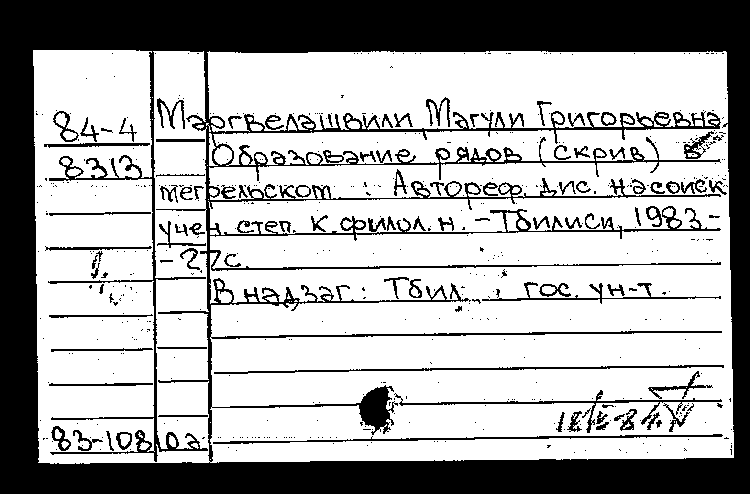 84-4 Маргвелашвили, Магули Григорьевна.
8313 Образование рядов (скрив) в
мегрельском. : Автореф. дис. на соиск
учен. степ. к. филол. н. - Тбилиси, 1983.-
-27с.
В надзаг.: Тбил. гос. ун-т.
83-10810а